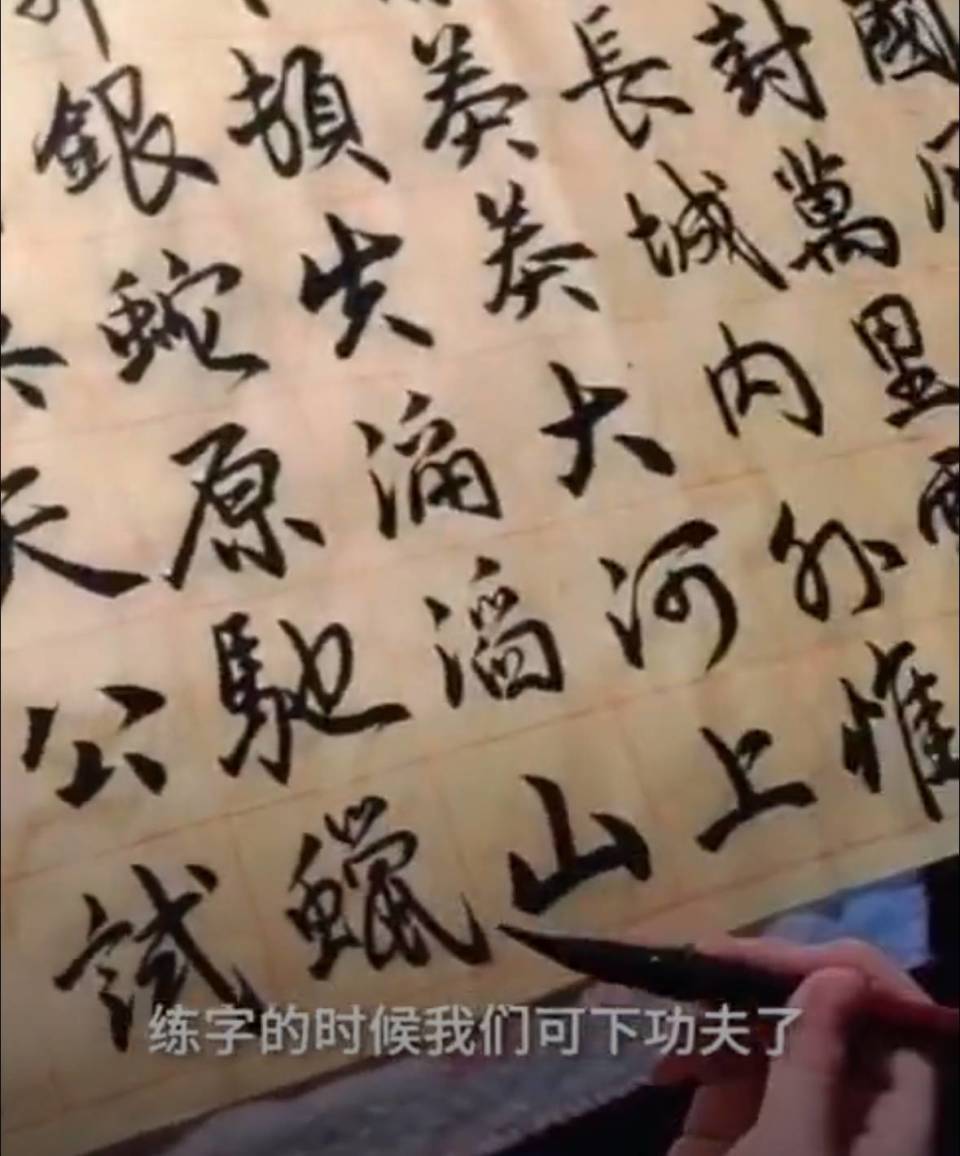 國
封萬里
長城内外惟
莽莽大河上
頓失滔滔山
銀蛇原馳蠟
天公試
练字的时候我们可下功夫了